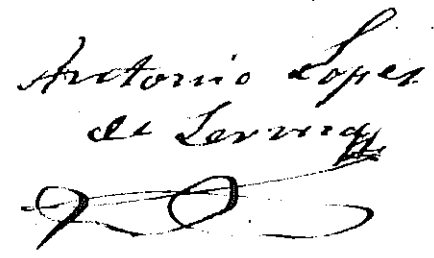 Antonio Lopez
de Lerma